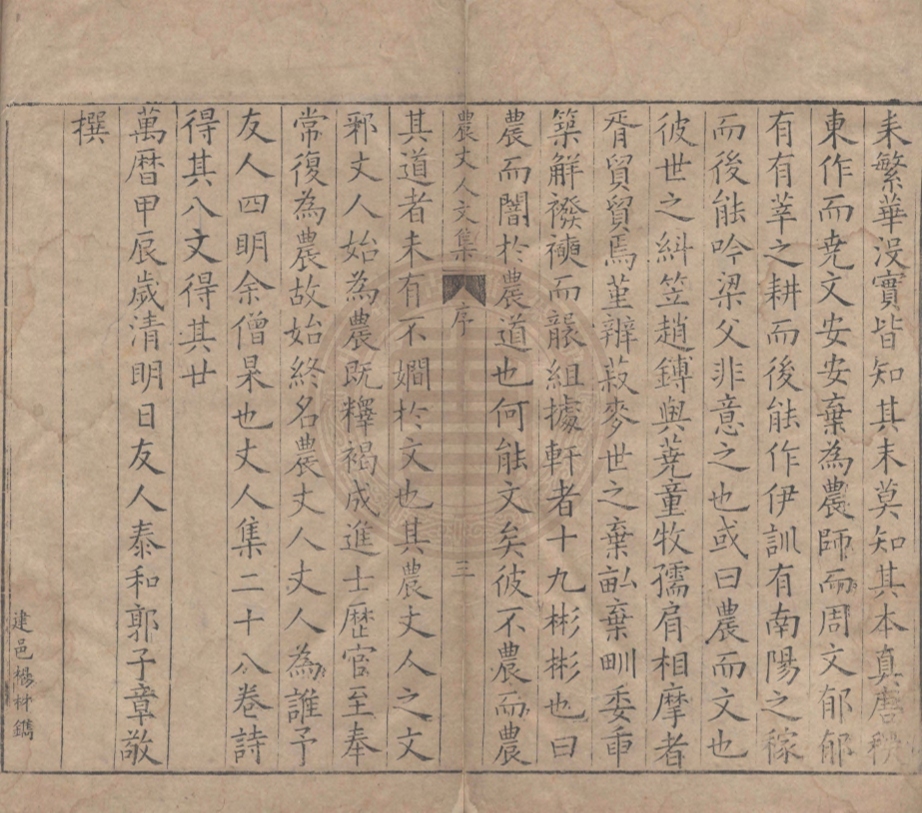 耒繁華沒實皆知其末莫知其本真唐秧
東作而尭文安安棄為農師而周文郁郁
有有莘之耕而後能作伊訓有南陽之稼
而後能吟梁父非意之也或曰農而文也
彼世之糾笠趙鏄與蕘童牧孺肩相摩者
胥貿貿焉堇辨菽麥世之棄畆棄甽委重
築解襏襫而龍組據軒者十九彬彬也曰
農而闇於農道也何能文矣彼不農而農
農丈人文集 序 三
其道者未有不嫺於文也其農丈人之文
邪丈人始為農既釋褐成進士歷官至奉
常復為農故始終名農丈人丈人為誰予
友人四明余僧杲也丈人集二十八卷詩
得其八文得其廿
萬曆甲辰歲清明日友人泰和郭子章敬
撰
建邑楊材鐫